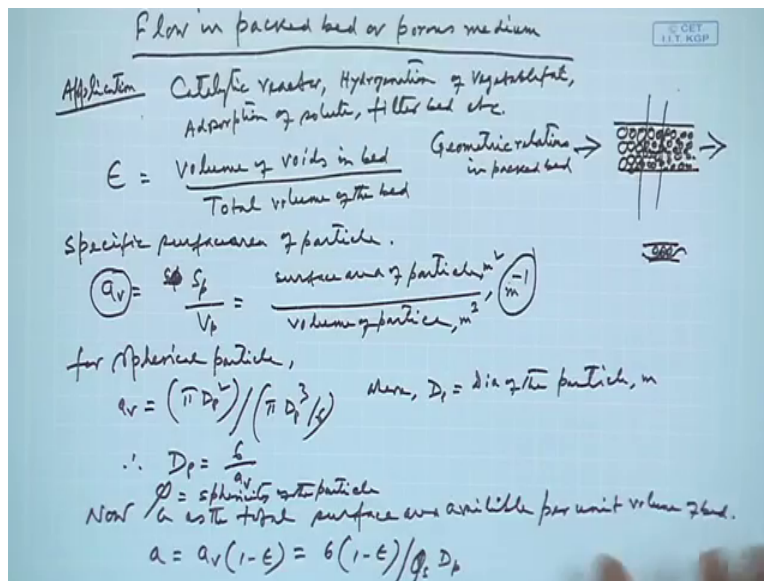 Flow in packed bed or porous medium
© CET
I.I.T. KGP
Application Catalytic reactor, Hydrogenation of vegetable fat,
Adsorption of solute, filter bed etc.
ϵ = Volume of voids in bed / Total volume of the bed
Geometric relation
in packed bed
Specific surface area of particle.
a_v = S_p / V_p = surface area of particle, m² / volume of particle, m³, m⁻¹
for spherical particle,
a_v = (π D_p²) / (π D_p³/6) where, D_p = dia of the particle, m
∴ D_p = 6 / a_v
φ = sphericity of the particle
Now a as the total surface area available per unit volume of bed.
a = a_v (1-ϵ) = 6(1-ϵ)/φ_s D_p